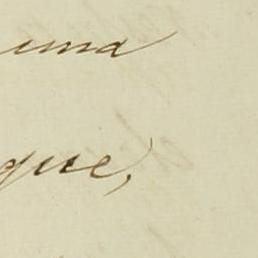 uma
que,